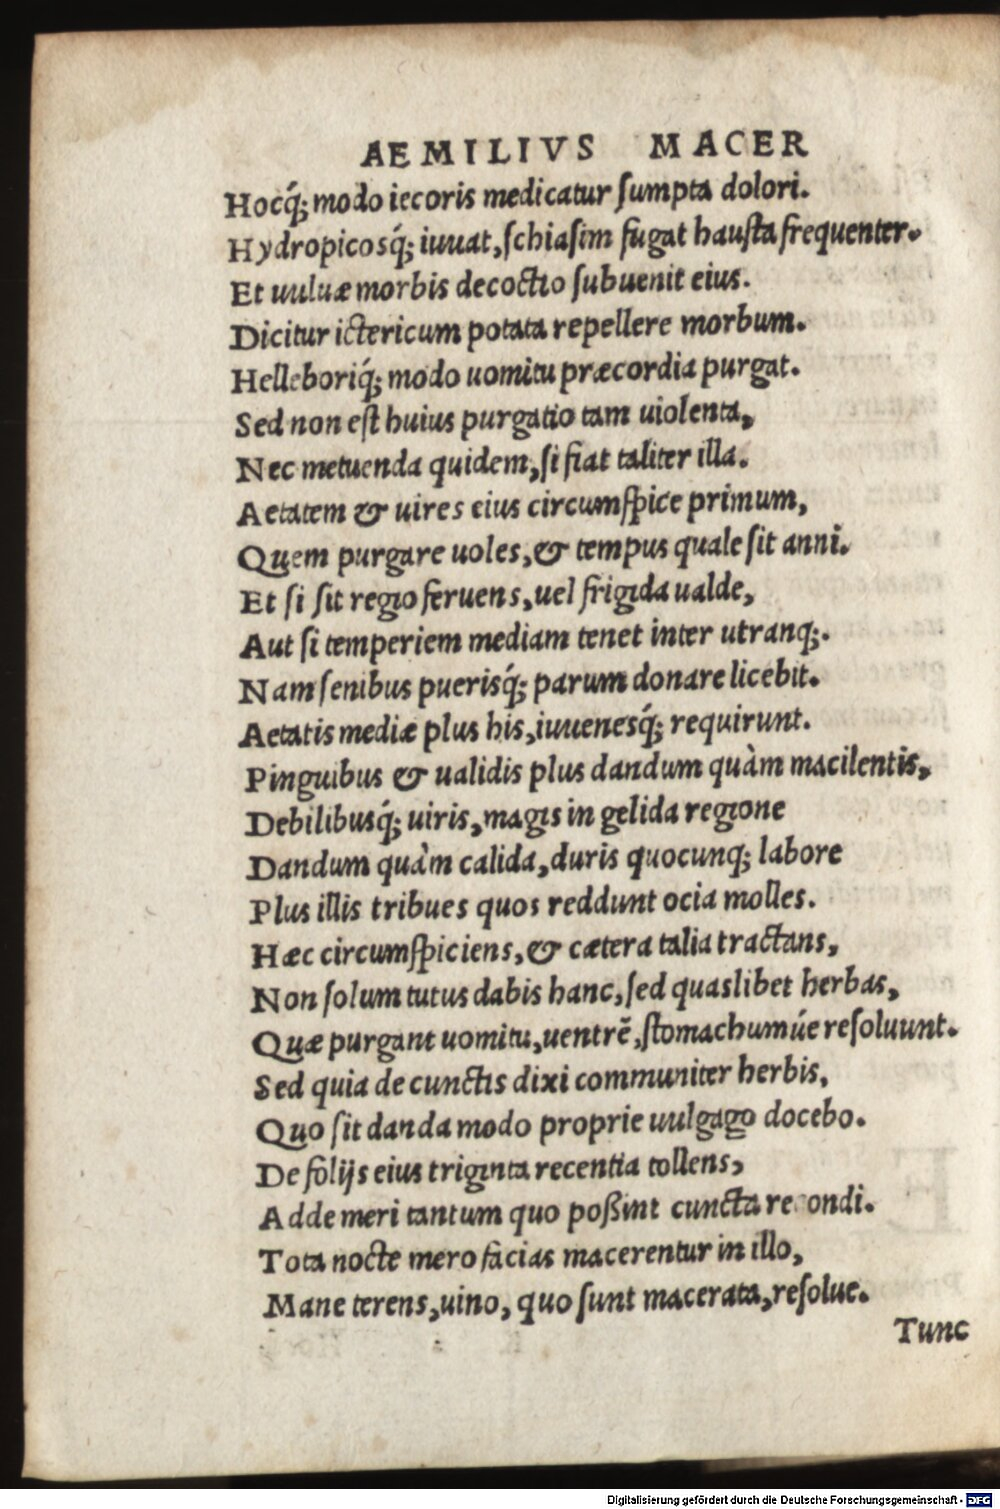 AEMILIVS MACER
Hocq́; modo iecoris medicatur ſumpta dolori.
Hydropicosq́; iuuat, ſchiaſim fugat hauſta frequenter.
Et uuluæ morbis decoctio ſubuenit eius.
Dicitur ictericum potata repellere morbum.
Helleboriq́; modo uomitu præcordia purgat.
Sed non eſt huius purgatio tam uiolenta,
Nec metuenda quidem, ſi fiat taliter illa.
Aetatem & uires eius circumſpice primum,
Quem purgare uoles, & tempus quale ſit anni.
Et ſi ſit regio feruens, uel frigida ualde,
Aut ſi temperiem mediam tenet inter utranq;.
Nam ſenibus puerisq́; parum donare licebit.
Aetatis mediæ plus his, iuuenesq́; requirunt.
Pinguibus & ualidis plus dandum quàm macilentis,
Debilibusq́; uiris, magis in gelida regione
Dandum quàm calida, duris quocunq; labore
Plus illis tribues quos reddunt ocia molles.
Hæc circumſpiciens, & cætera talia tractans,
Non ſolum tutus dabis hanc, ſed quaslibet herbas,
Quæ purgant uomitu, uentrē, ſtomachumúe reſoluunt.
Sed quia de cunctis dixi communiter herbis,
Quo ſit danda modo proprie uulgago docebo.
De folijs eius triginta recentia tollens,
Adde meri tantum quo poßint cuncta re ondi.
Tota nocte mero facias macerentur in illo,
Mane terens, uino, quo ſunt macerata, reſolue.
Tunc
Digitalisierung gefördert durch die Deutsche Forschungsgemeinschaft - DFG